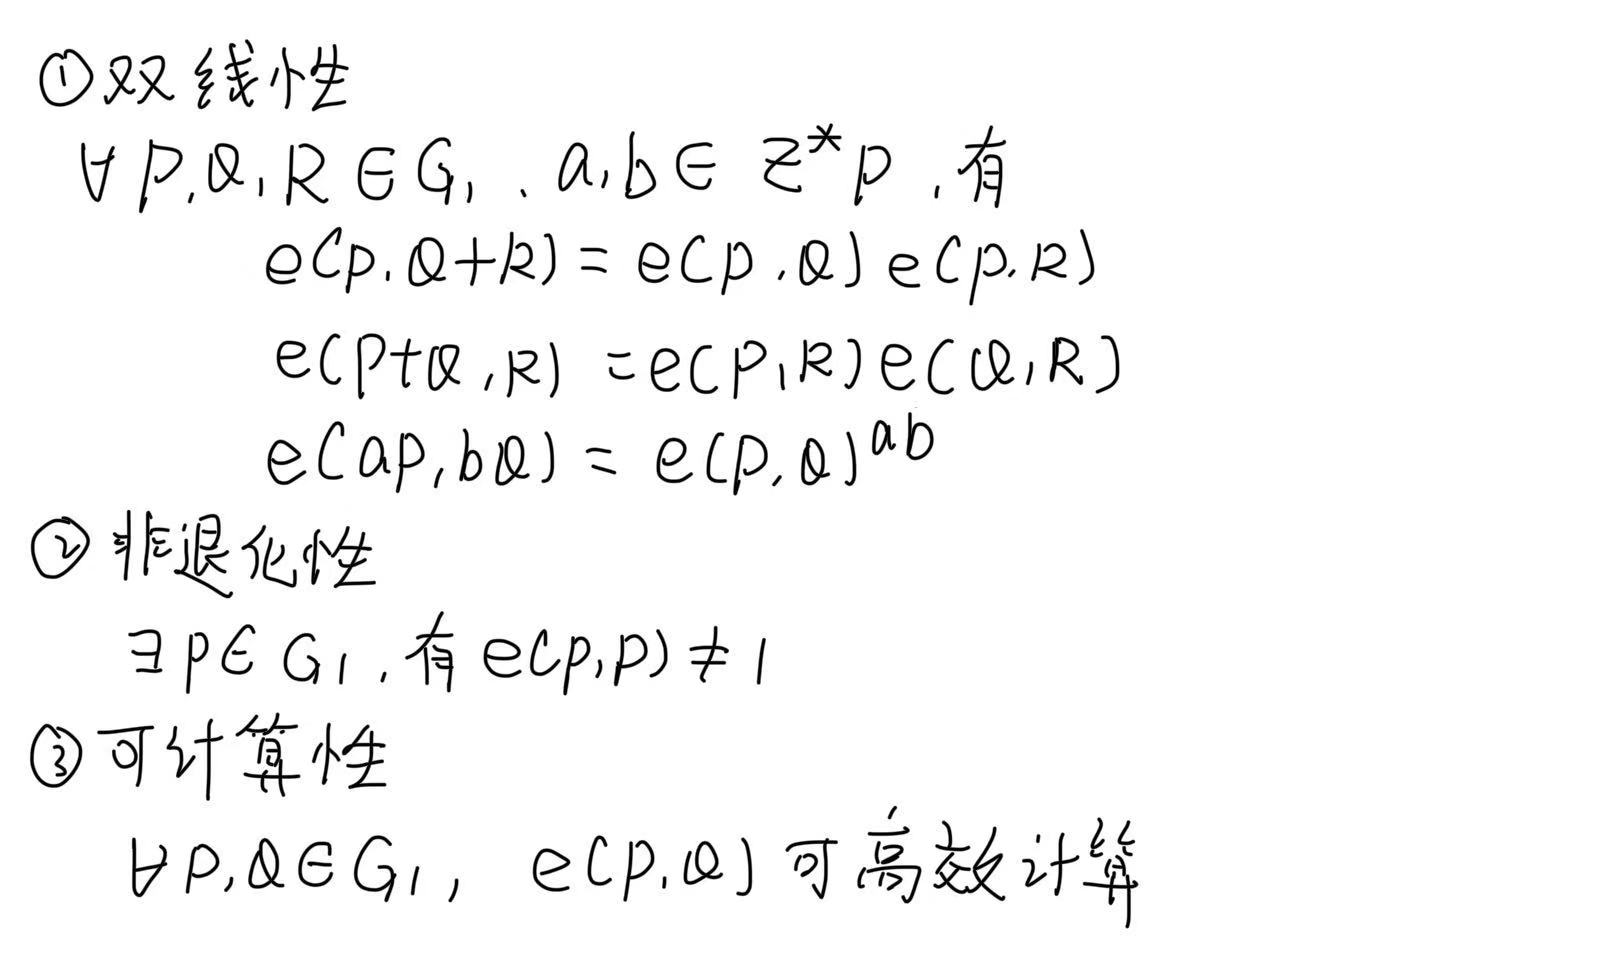 ①双线性
∀P,Q,R∈G₁,a,b∈Z*p,有
e(P,Q+R)=e(P,Q)e(P,R)
e(P+Q,R)=e(P,R)e(Q,R)
e(aP,bQ)=e(P,Q)^ab
②非退化性
∃P∈G₁,有e(P,P)≠1
③可计算性
∀P,Q∈G₁,e(P,Q)可高效计算